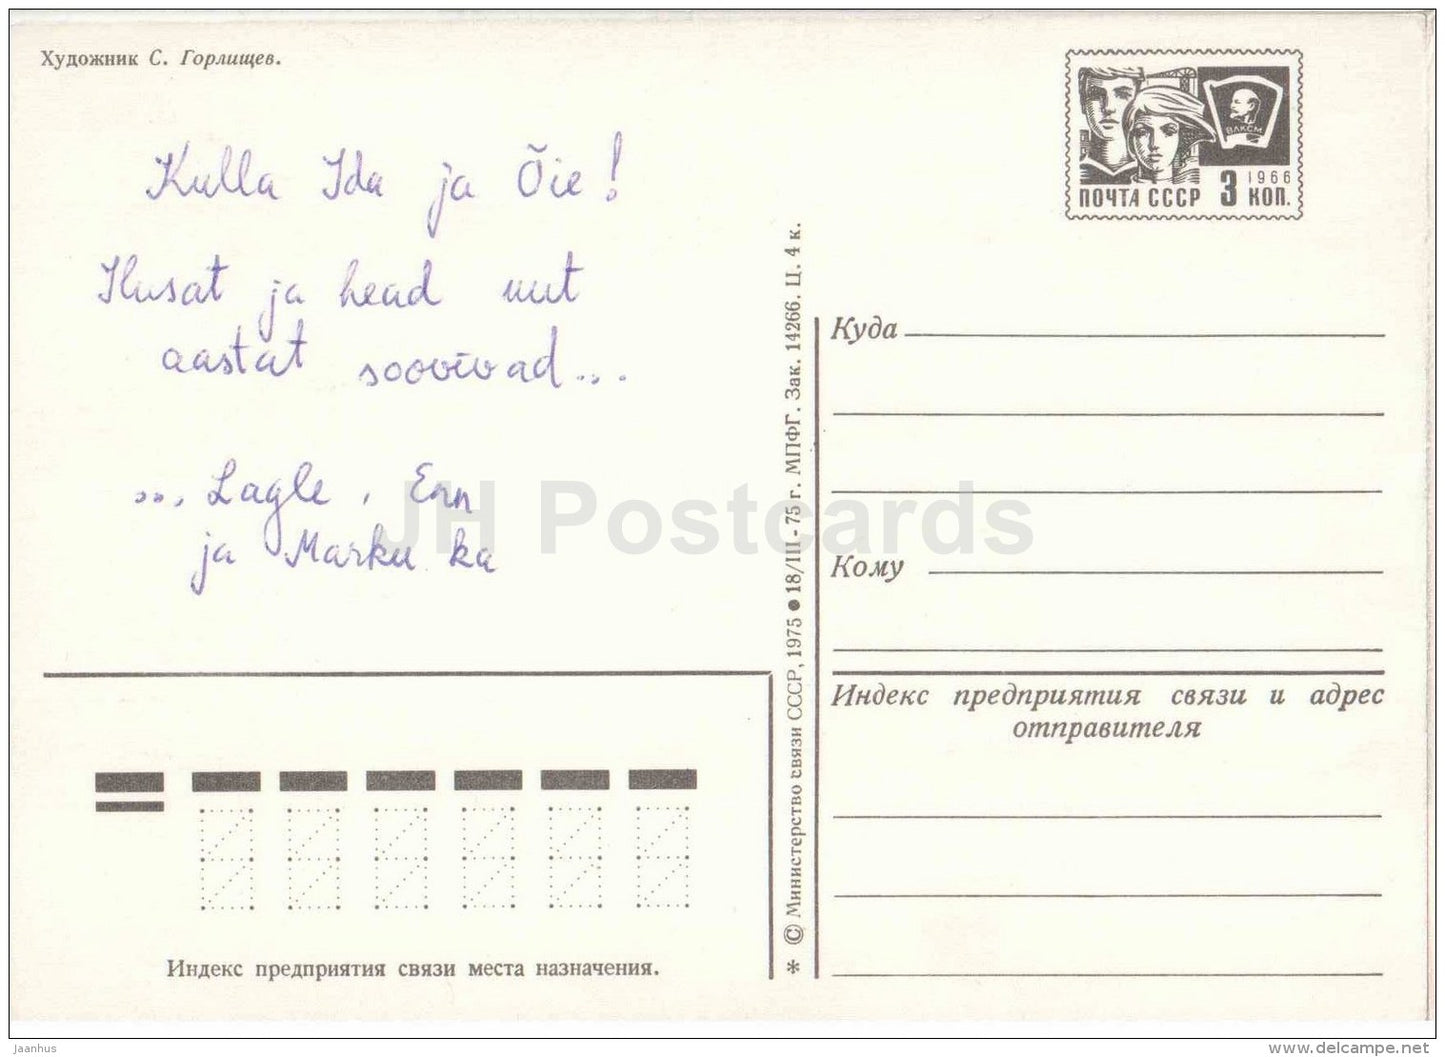 Художник С. Горлищев.
Kulla Ida ja Õie!
Ilusat ja head uut
aastat soovivad...
..., Lagle, Enn
ja Marku ka
Индекс предприятия связи места назначения.
* © Министерство связи СССР, 1975 ● 18/III - 75 г. МПФГ. Зак. 14266. Ц. 4 к.
ВЛКСМ
1966
ПОЧТА СССР 3 КОП.
Куда
Кому
Индекс предприятия связи и адрес
отправителя
JH Postcards
Jaanhus
www.delcampe.net